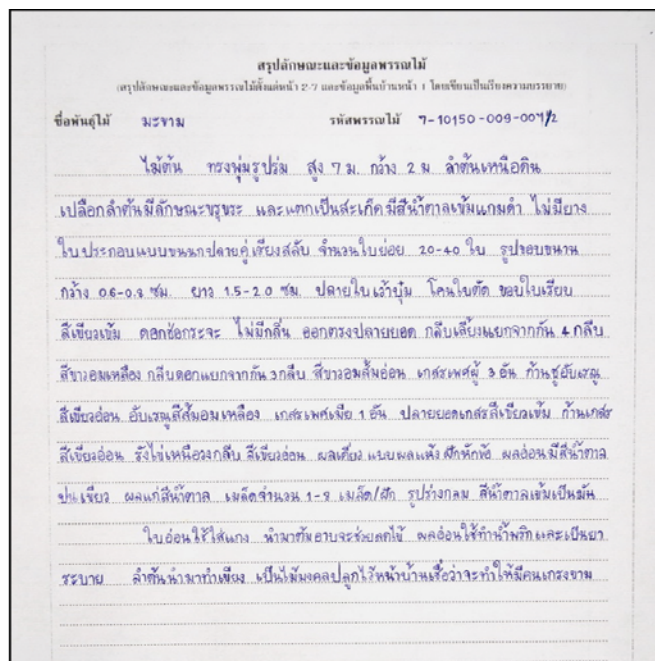 สรุปลักษณะและข้อมูลพรรณไม้
(สรุปลักษณะและข้อมูลพรรณไม้ตั้งแต่หน้า 2-7 และข้อมูลพื้นบ้านหน้า 1 โดยเขียนเป็นเรียงความบรรยาย)
ชื่อพันธุ์ไม้ มะขาม รหัสพรรณไม้ 7-10150-009-007/2
ไม้ต้น ทรงพุ่มรูปร่ม สูง 7 ม. กว้าง 2 ม. ลำต้นเหนือดิน
เปลือกลำต้นมีลักษณะขรุขระ และแตกเป็นสะเก็ด มีสีน้ำตาลเข้มแกมดำ ไม่มียาง
ใบประกอบแบบขนนกปลายคู่เรียงสลับ จำนวนใบย่อย 20-40 ใบ รูปขอบขนาน
กว้าง 0.6-0.8 ซม. ยาว 1.5-2.0 ซม. ปลายใบเว้าบุ๋ม โคนใบตัด ขอบใบเรียบ
สีเขียวเข้ม ดอกช่อกระจะ ไม่มีกลิ่น ออกตรงปลายยอด กลีบเลี้ยงแยกจากกัน 4 กลีบ
สีขาวอมเหลือง กลีบดอกแยกจากกัน 3 กลีบ สีขาวอมส้มอ่อน เกสรเพศผู้ 3 อัน ก้านชูอับเรณู
สีเขียวอ่อน อับเรณูสีส้มอมเหลือง เกสรเพศเมีย 1 อัน ปลายยอดเกสรสีเขียวเข้ม ก้านเกสร
สีเขียวอ่อน รังไข่เหนือวงกลีบ สีเขียวอ่อน ผลเดี่ยว แบบผลแห้ง ฝักหักข้อ ผลอ่อนมีสีน้ำตาล
ปนเขียว ผลแก่สีน้ำตาล เมล็ดจำนวน 1-9 เมล็ด/ฝัก รูปร่างกลม สีน้ำตาลเข้มเป็นมัน
ใบอ่อนใช้ใส่แกง นำมาต้มอาบจะช่วยลดไข้ ผลอ่อนใช้ทำน้ำพริกและเป็นยา
ระบาย ลำต้นนำมาทำเขียง เป็นไม้มงคลปลูกไว้หน้าบ้านเชื่อว่าจะทำให้มีคนเกรงขาม